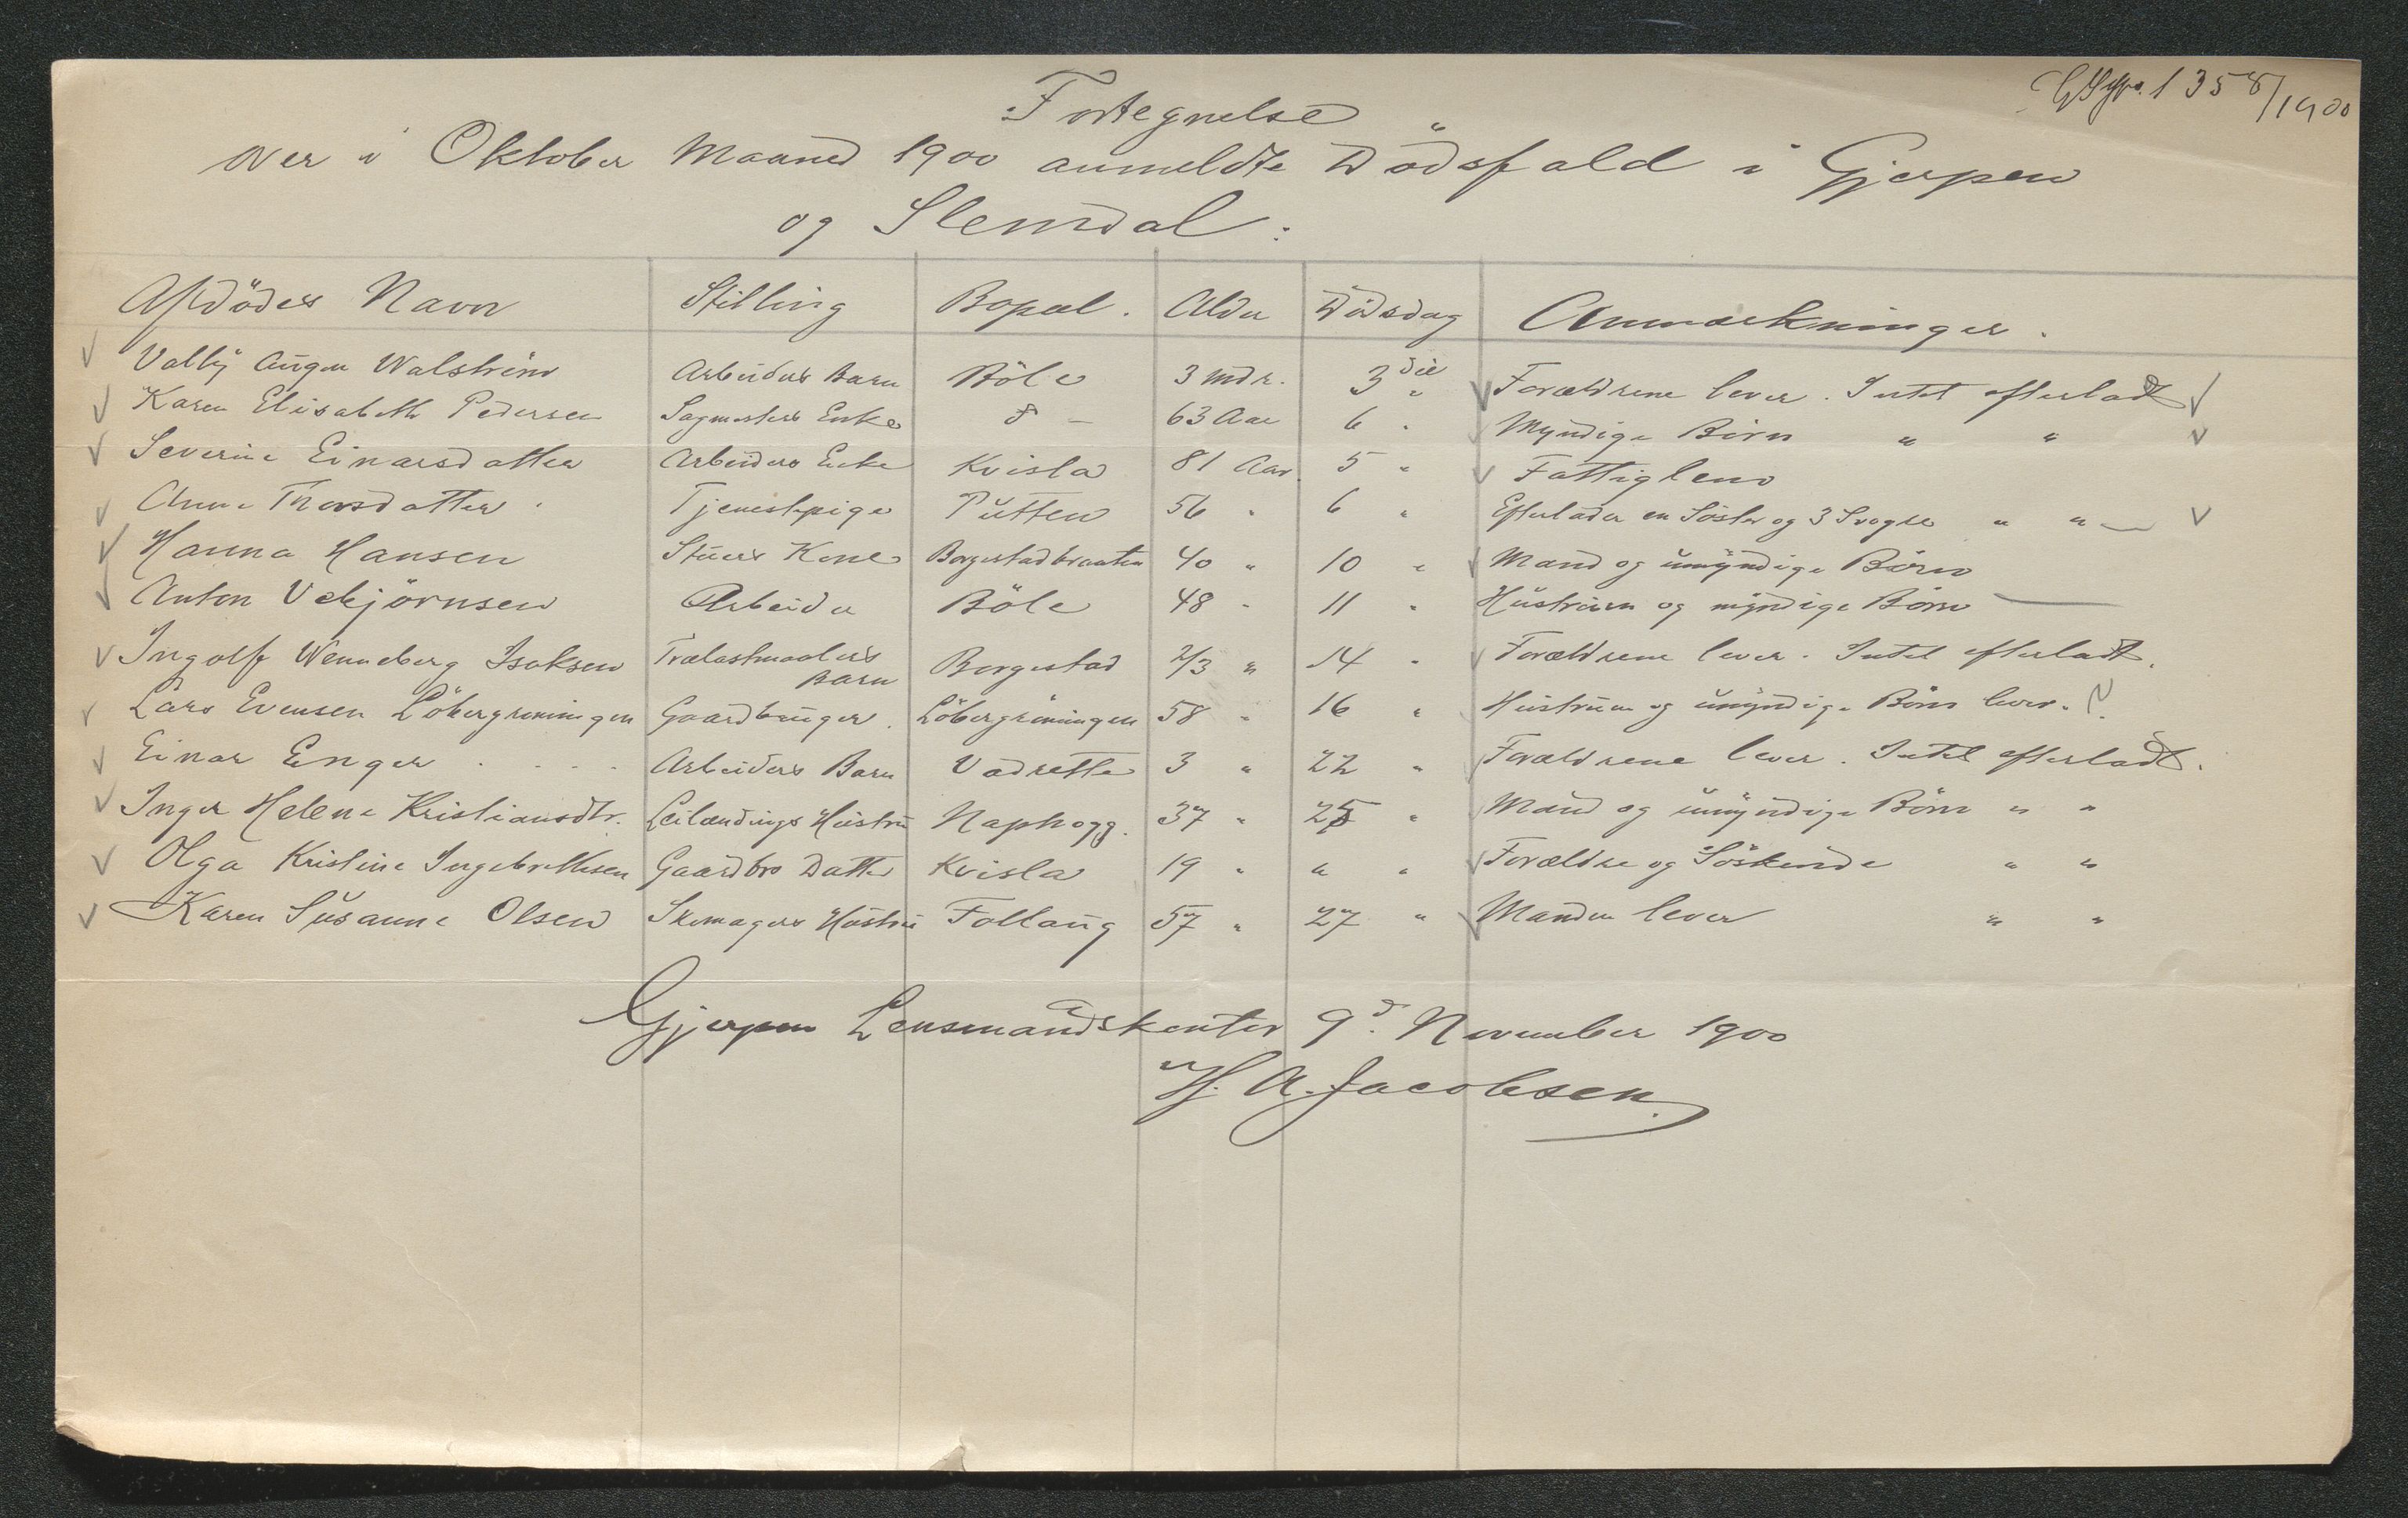 1358/1900
Fortegnelse
over i Oktober Maaned 1900 anmeldte Dödsfald i Gjerpen
og Slemdal:
Afdödes Navn Stilling Bopæl. Alder Dödsdag Anmærkninger.
Valby Walström Arbeiders Barn Böle 3 mdr. 3die " Forældrene lever. Intet efterladt
Karen Elisabeth Pedersen Sagmesters Enke do - 63 Aar 6 " Myndige Börn " "
Severine Einarsdatter Arbeiders Enke Kvisla 81 Aar. 5 " Fattiglem
Anne Thorsdatter Tjenestepige Putten 56 " 6 " Efterlader en Söster og 3 Svogre " "
Hanna Hansen Stuers Kone Borgestadbraaten 40 " 10 " Mand og umyndige Börn
Anton Vebjörnsen Arbeider Böle 48 " 11 " Hustruen og myndige Börn
Ingolf Wenneberg Isaksen Trælastmaalers Barn Borgestad 2/3 " 14 " Forældrene lever. Intet efterladt.
Lars Evensen Löbergröningen Gaardbruger. Löbergröningen 58 " 16 " Hustru og umyndige Börn lever. ?
Einar Enger Arbeiders Barn Vadrette 3 " 22 " Forældrene lever. Intet efterladt.
Inger Helene Kristiansdtr. Leilændings Hustru Naphogg. 37 " 25 " Mand og umyndige Börn " "
Olga Kristine Ingebrethsen Gaardbrs Datter Kvisla 19 " " " Forældre og Söskende " "
Karen Susanne Olsen Skomagers Hustru Follaug 57 " 27 " Manden lever " "
Gjerpen Lensmandskontor 9d. November 1900
H. A. Jacobsen.